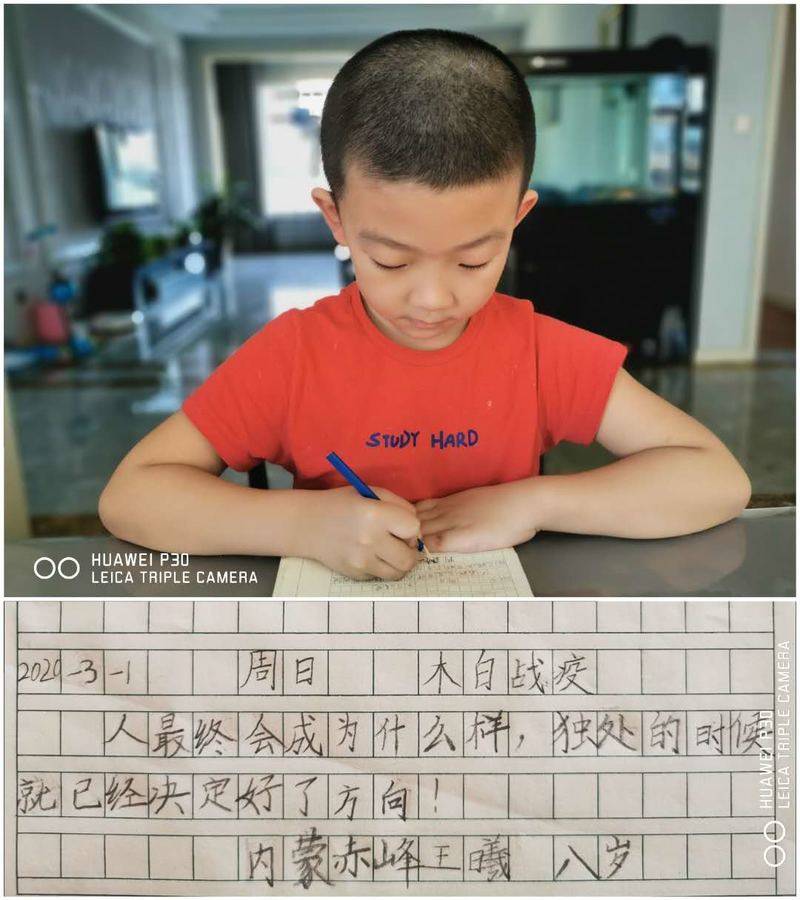 STUDY HARD
HUAWEI P30
LEICA TRIPLE CAMERA
2020-3-1 周日 木白战疫
人最终会成为什么样，独处的时候
就已经决定好了方向！
内蒙赤峰王曦 八岁
HUAWEI P30
LEICA TRIPLE CAMERA